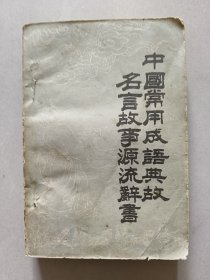 中國常用成語典故
名言故事源流辭書